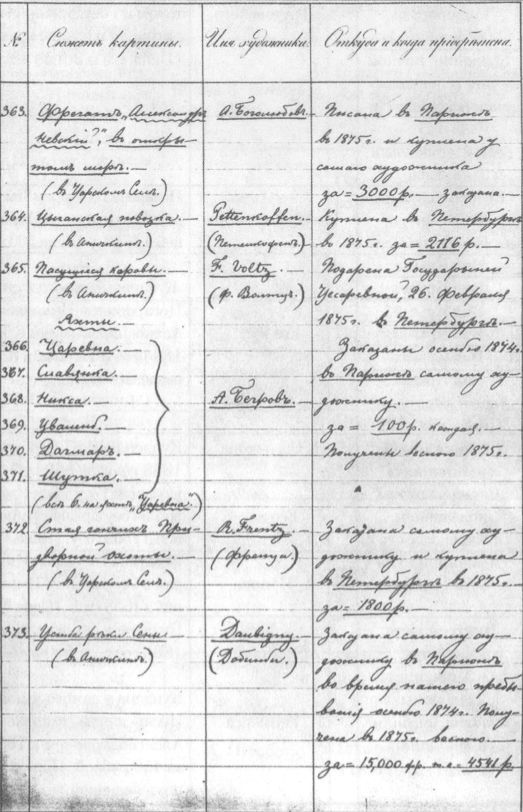 № Сюжетъ картины. Имя художника. Откуда и когда пріобрѣтена.
363. Фрегатъ „Александръ А. Боголюбовъ. Писана въ Парижѣ
Невскій", въ откры- въ 1875 г. и куплена у
томъ морѣ. самаго художника
(въ Царскомъ Селѣ.) за = 3000 р. заказана.
364. Цыганская повозка. Pettenkoffen. Куплена въ Петербургѣ
(въ Аничкинѣ.) (Петенкофенъ.) въ 1875 г. за = 2116 р.
365. Пасущіяся коровы. F. Voltz. Подарена Государыней
(въ Аничкинѣ.) (Ф. Волтцъ.) Цесаревной, 26. Февраля
Яхты 1875 г. въ Петербургѣ.
366. Царевна. Заказаны осенью 1874 г.
367. Славянка. въ Парижѣ самому ху-
368. Никса. А. Бегровъ. дожнику.
369. за = 100 р. каждая.
370. Дагмаръ. Получены весною 1875 г.
371. Шутка.
(всѣ 6. на яхтѣ „Царевна".)
372. Стая гончихъ При- R. Frentz. Заказана самому ху-
дворной охоты. (Френца.) дожнику и куплена
(въ Царскомъ Селѣ.) въ Петербургѣ въ 1875 г.
за = 1800 р.
373. рѣки Сены Daubigny. Заказана самому ху-
(въ Аничкинѣ.) (Добиньи.) дожнику въ Парижѣ
во время нашего пребы-
ванія осенью 1874 г. Полу-
чена въ 1875 г. весною.
за = 15,000 фр. т.е. = 4541 р.